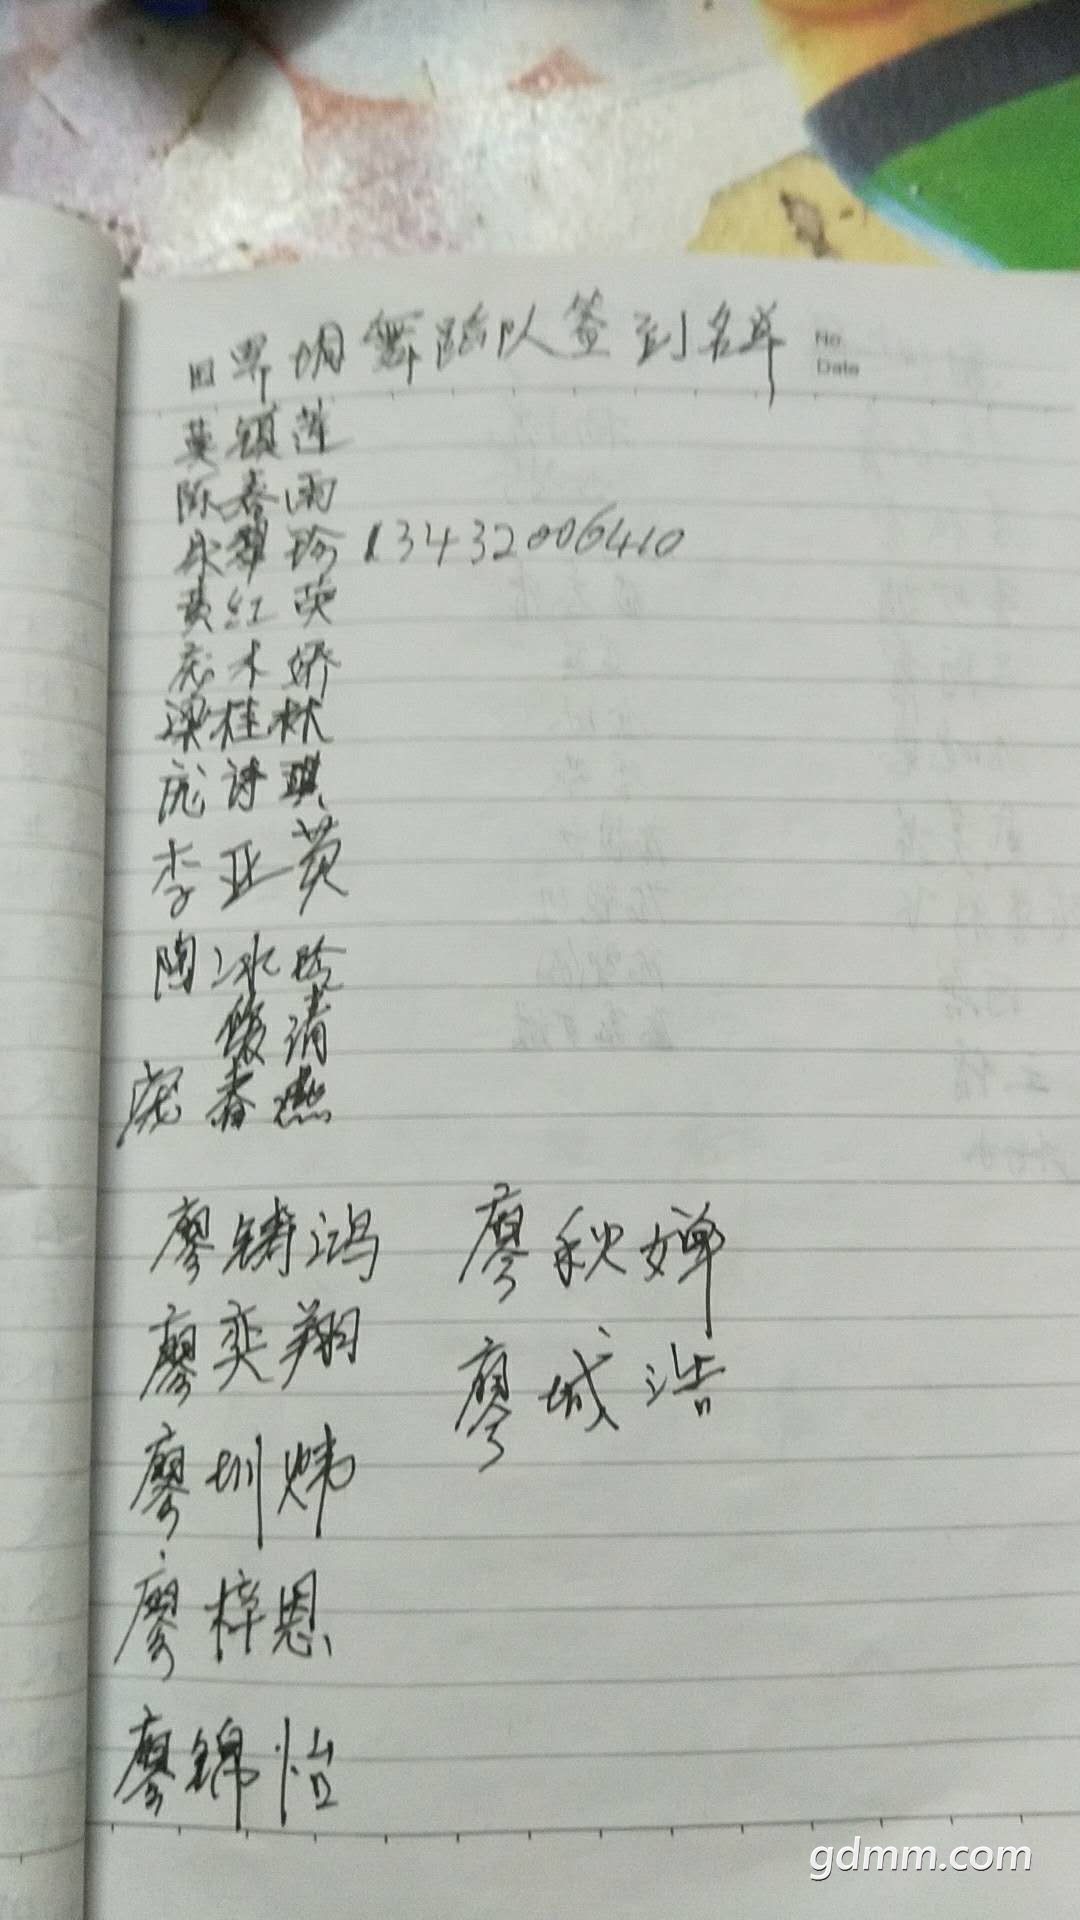 舞蹈队签到名单
No.
Date
黄镇莲
陈春雨
翠珍 13432006410
黄红英
庞木娇
梁桂林
庞诗琪
李亚黄
陶冰玲
俊清
庞春燕
廖铸鸿 廖秋婵
廖奕翔 廖城浩
廖圳炜
廖梓恩
廖锦怡
gdmm.com